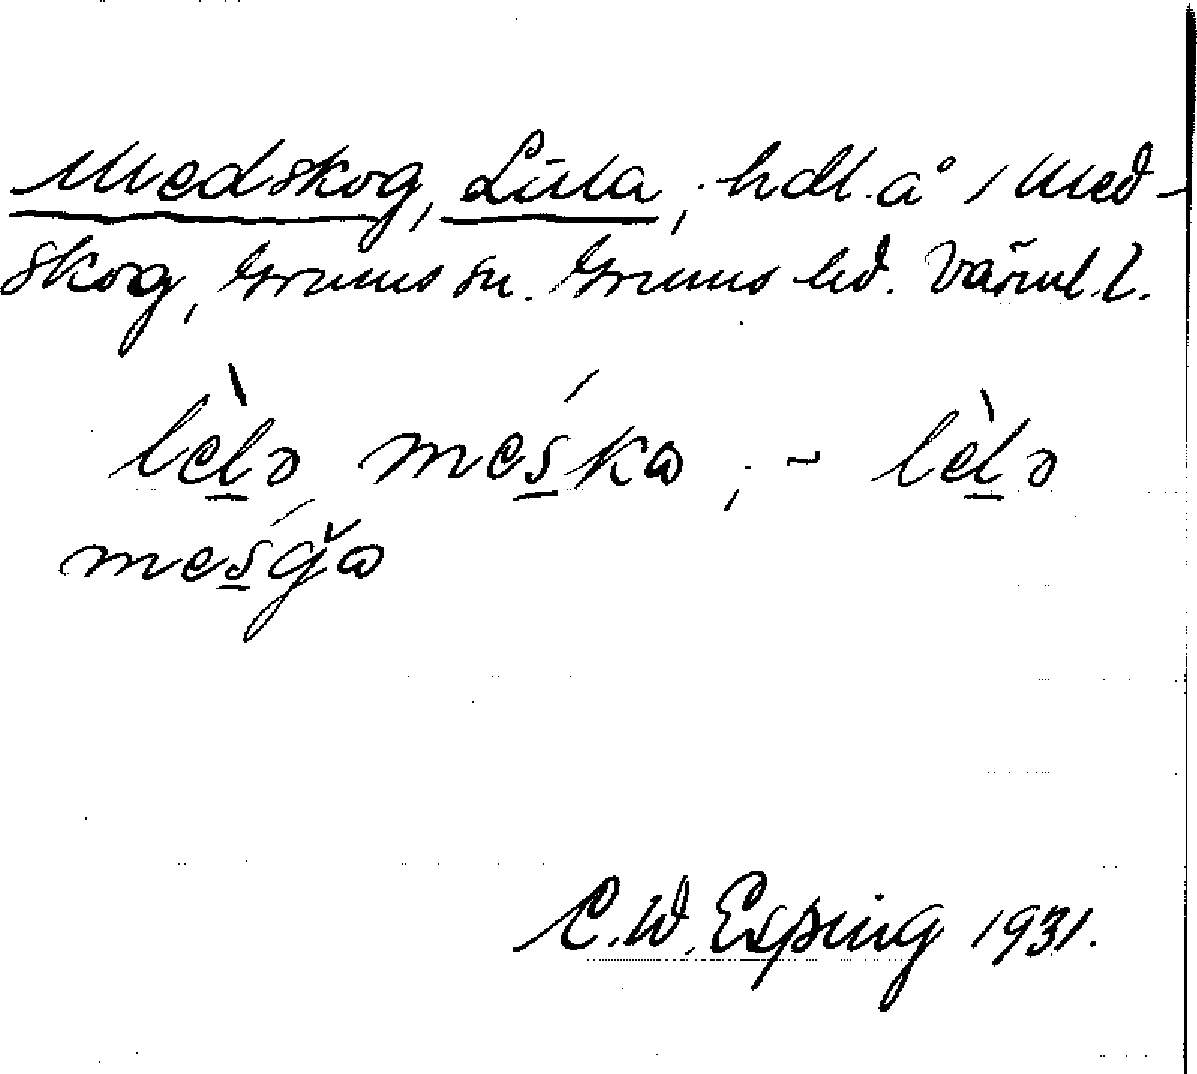 Medskog, Lilla, hdl. å 1 Med-
skog, Grums sn. Grums hd. Värml. l.
lèlə méska ; - lèlə
mésğa
C.W. Esping 1931.